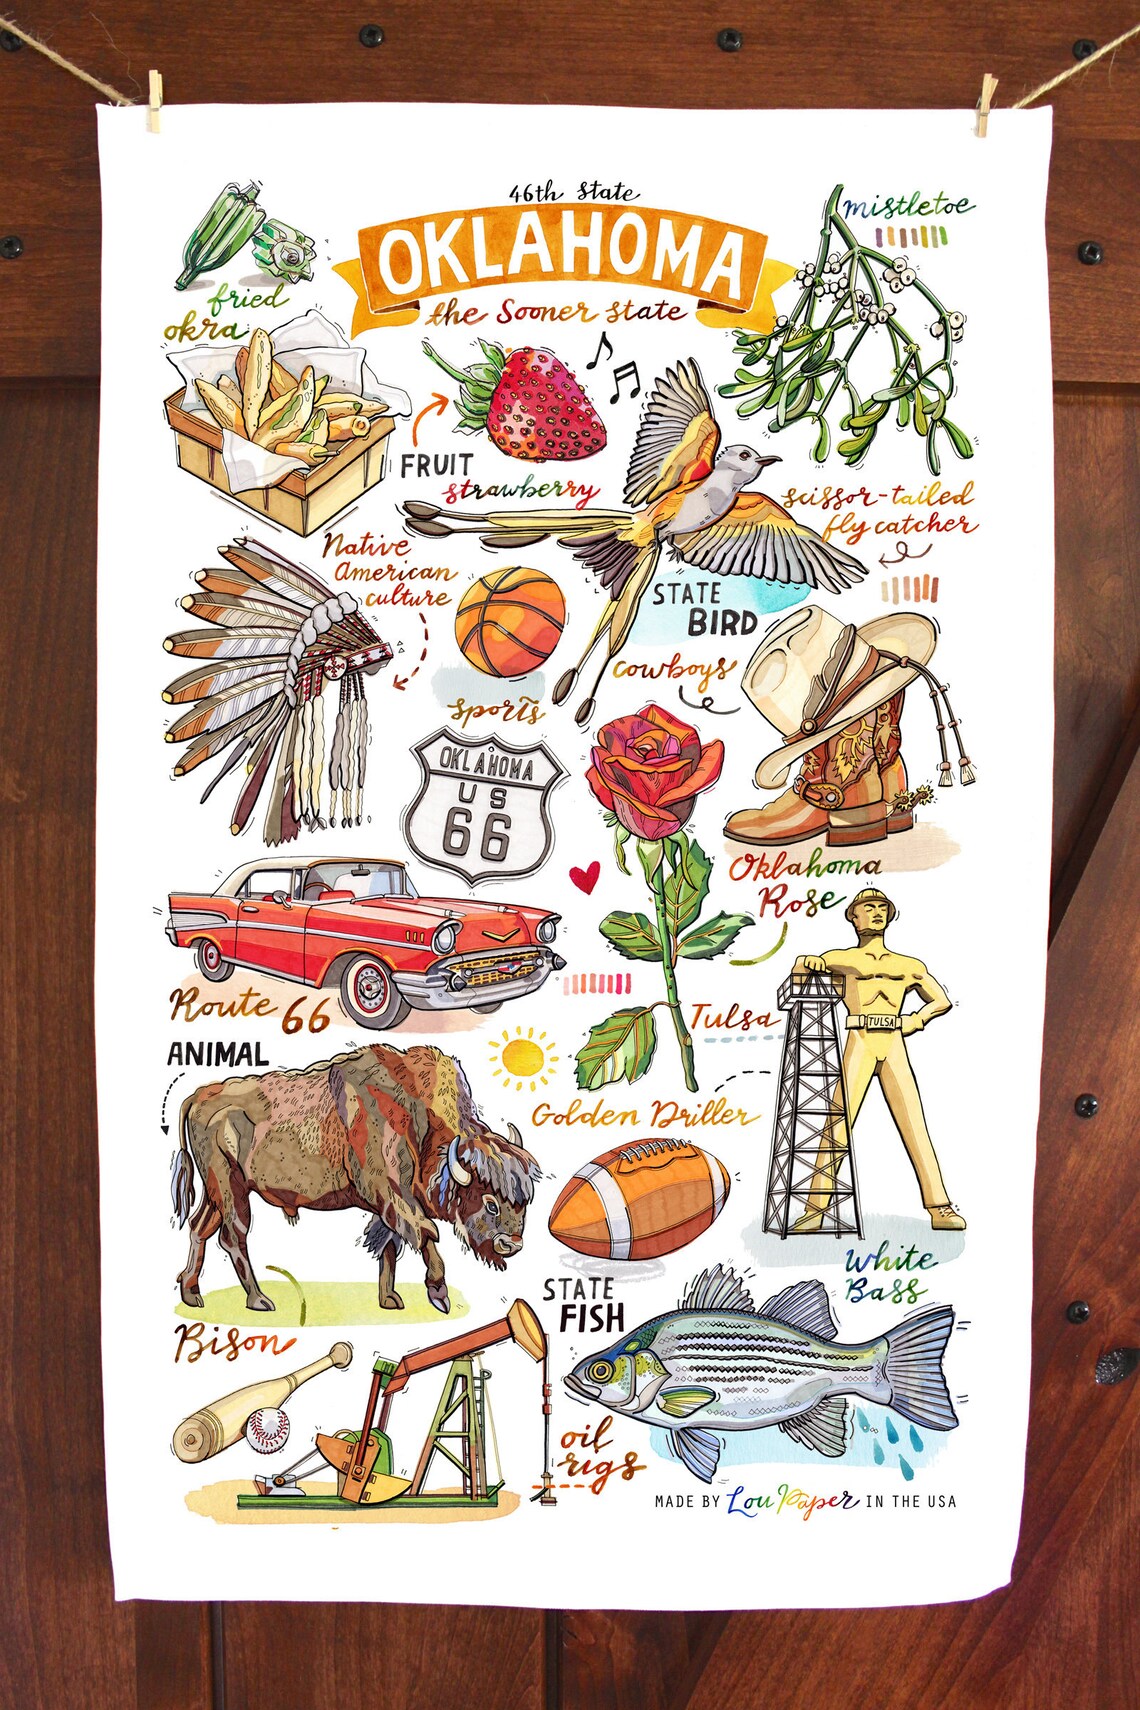 46th State
OKLAHOMA
the Sooner State
mistletoe
fried
okra
FRUIT
strawberry
scissor-tailed
fly catcher
Native
American
culture
STATE
BIRD
cowboys
sports
OKLAHOMA
US
66
Oklahoma
Rose
Route 66
Tulsa
TULSA
ANIMAL
Golden Driller
White
Bass
STATE
FISH
Bison
oil
rigs
MADE BY Lou Paper IN THE USA